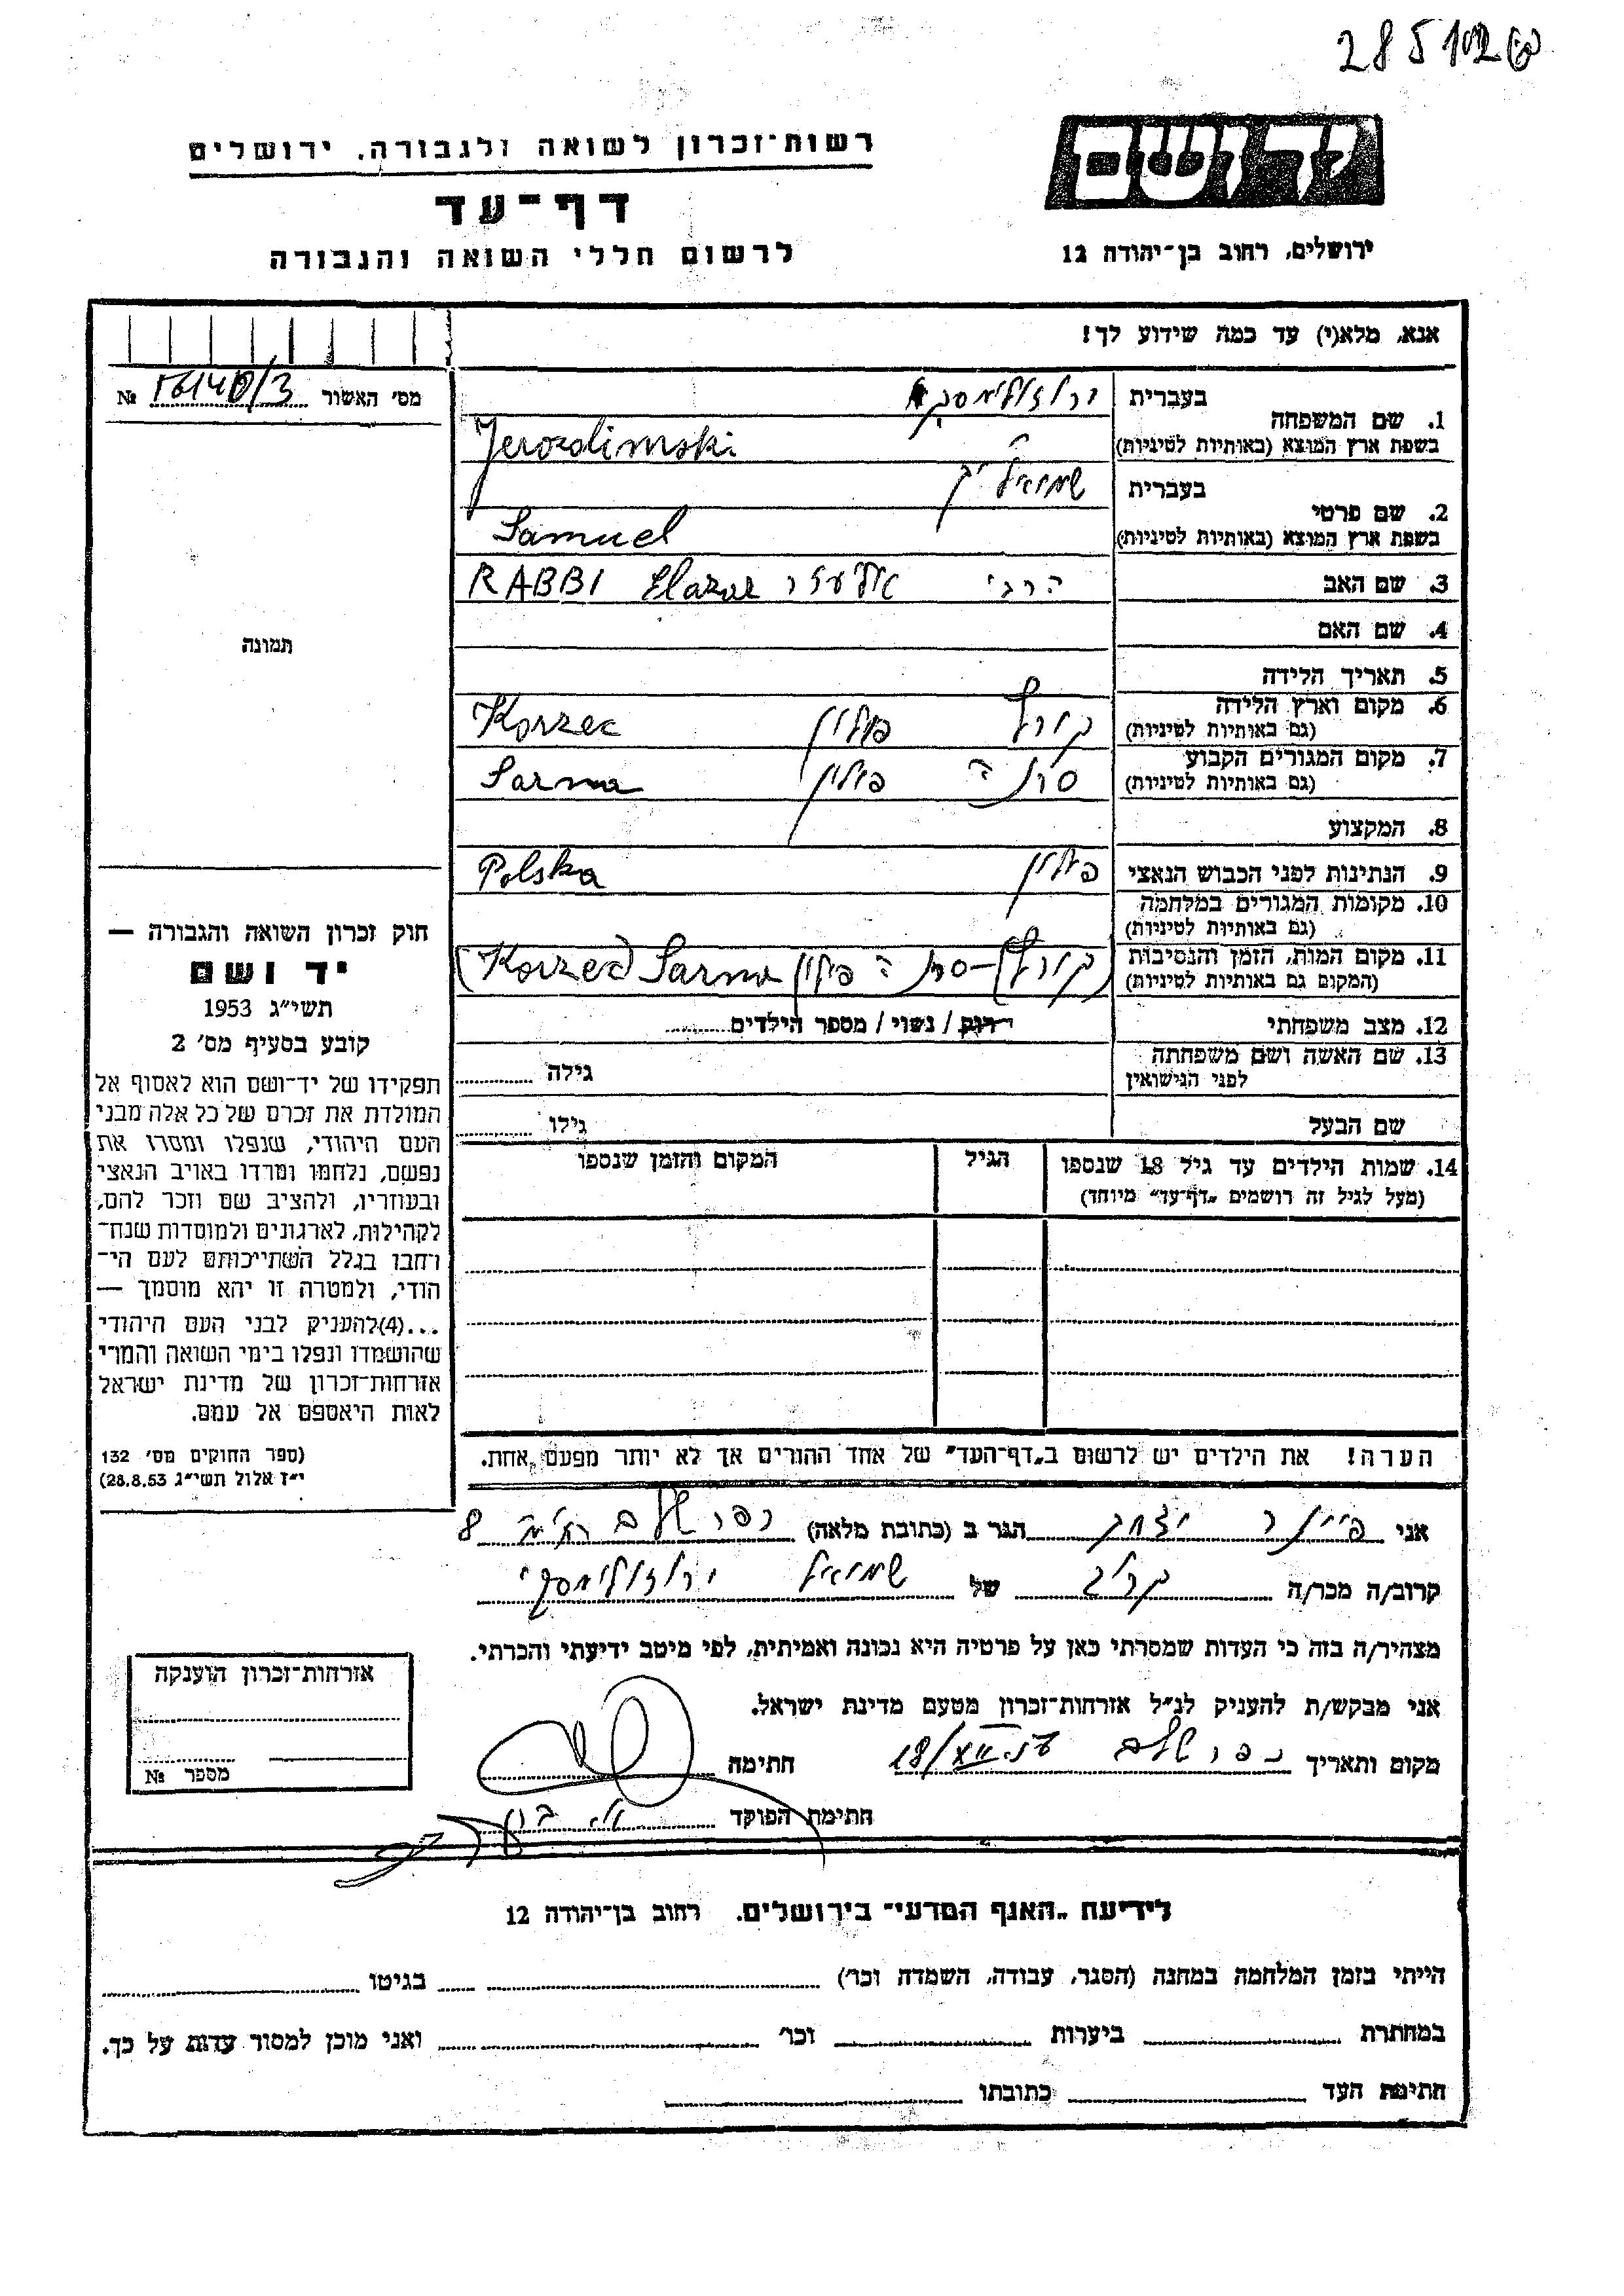 285102
ידושם
ירושלים, רחוב בן־יהודה 12
רשות־זכרון לשואה ולגבורה. ירושלים
דף־עד
לרשום חללי השואה והגבורה
אנא, מלא(י) עד כמה שידוע לך!
מס׳ האשור № 16140/3
תמונה
1. שם המשפחה
בעברית ירוזולימסקי
בשפת ארץ המוצא (באותיות לטיניות) Jerozolimski
2. שם פרטי
בעברית שמואל
בשפת ארץ המוצא (באותיות לטיניות) Samuel
3. שם האב הרבי אליעזר Elazar RABBI
4. שם האם
5. תאריך הלידה
6. מקום וארץ הלידה
(גם באותיות לטיניות) קורץ פולין Korzec
7. מקום המגורים הקבוע
(גם באותיות לטיניות) סרנה פולין Sarna
8. המקצוע
9. הנתינות לפני הכבוש הנאצי פולין Polska
10. מקומות המגורים במלחמה
(גם באותיות לטיניות)
11. מקום המות, הזמן והנסיבות
(המקום גם באותיות לטיניות) (קורץ) – סרנה פולין Sarna (Korzec)
12. מצב משפחתי רווק / נשוי / מספר הילדים
13. שם האשה ושם משפחתה
לפני הנישואין
גילה
שם הבעל
גילו
14. שמות הילדים עד גיל 18 שנספו
(מעל לגיל זה רושמים „דף־עד״ מיוחד)
הגיל
המקום והזמן שנספו
הערה! את הילדים יש לרשום ב„דף־העד״ של אחד ההורים אך לא יותר מפעם אחת.
חוק זכרון השואה והגבורה —
יד ושם
תשי״ג 1953
קובע בסעיף מס׳ 2
תפקידו של יד־ושם הוא לאסוף אל
המולדת את זכרם של כל אלה מבני
העם היהודי, שנפלו ומסרו את
נפשם, נלחמו ומרדו באויב הנאצי
ובעוזריו, ולהציב שם וזכר להם,
לקהילות, לארגונים ולמוסדות שנח־
רחבו בגלל השתייכותם לעם הי־
הודי, ולמטרה זו יהא מוסמך —
...(4)להעניק לבני העם היהודי
שהושמדו ונפלו בימי השואה והמרי
אזרחות־זכרון של מדינת ישראל
לאות היאספם אל עמם.
(ספר החוקים מס׳ 132
י״ז אלול תשי״ג 28.8.53)
אני יצחק הגר ב (כתובת מלאה) 8
קרוב/ה מכר/ה קרוב של שמואל ירוזולימסקי
מצהיר/ה בזה כי העדות שמסרתי כאן על פרטיה היא נכונה ואמיתית, לפי מיטב ידיעתי והכרתי.
אני מבקש/ת להעניק לנ״ל אזרחות־זכרון מטעם מדינת ישראל.
מקום ותאריך 18/XII חתימה
חתימת הפוקד
אזרחות־זכרון הוענקה
מספר №
לידיעת „האגף המדעי״ בירושלים. רחוב בן־יהודה 12
הייתי בזמן המלחמה במחנה (הסגר, עבודה, השמדה וכר׳) בגיטו
במחתרת ביערות וכר׳ ואני מוכן למסור עדות על כך.
חתימת העד כתובתו